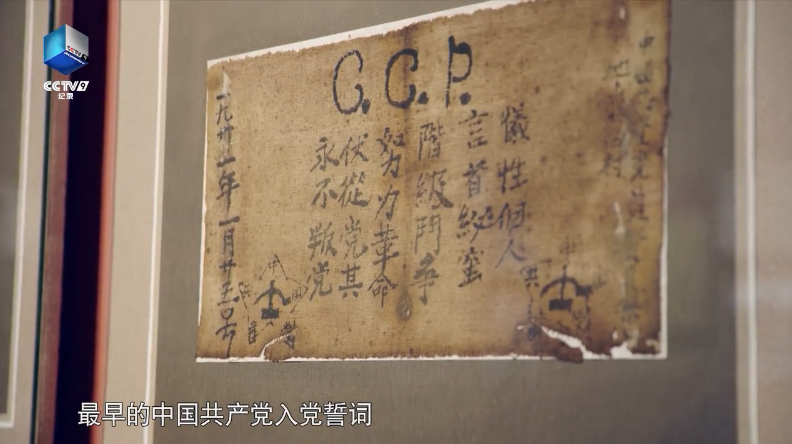 CCTV9
纪录
C.C.P.
犧牲個人
言首秘蜜
階級鬥争
努力革命
伏從党其
永不叛党
一九卅一年一月廿五号
最早的中国共产党入党誓词